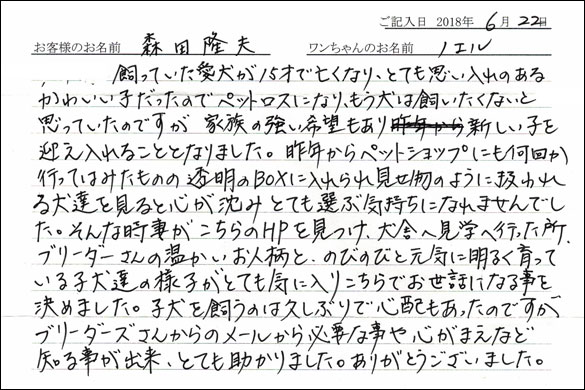 ご記入日 2018年 6月 22日
お客様のお名前 森田隆夫 ワンちゃんのお名前 ノエル
飼っていた愛犬が15才で亡くなり、とても思い入れのある
かわいい子だったのでペットロスになり、もう犬は飼いたくないと
思っていたのですが 家族の強い希望もあり 昨年から 新しい子を
迎え入れることとなりました。昨年からペットショップにも何回か
行ってはみたものの 透明のBOXに入れられ見せ物のように扱われ
る犬達を見ると心が沈み とても選ぶ気持ちになれませんでし
た。そんな時妻がこちらのHPを見つけ、犬舎へ見学へ行った所、
ブリーダーさんの温かいお人柄と、のびのびと元気に明るく育って
いる子犬達の様子がとても気に入りこちらでお世話になる事を
決めました。子犬を飼うのは久しぶりで心配もあったのですが
ブリーダーズさんからのメールから必要な事や心がまえなど
知る事が出来、とても助かりました。ありがとうございました。